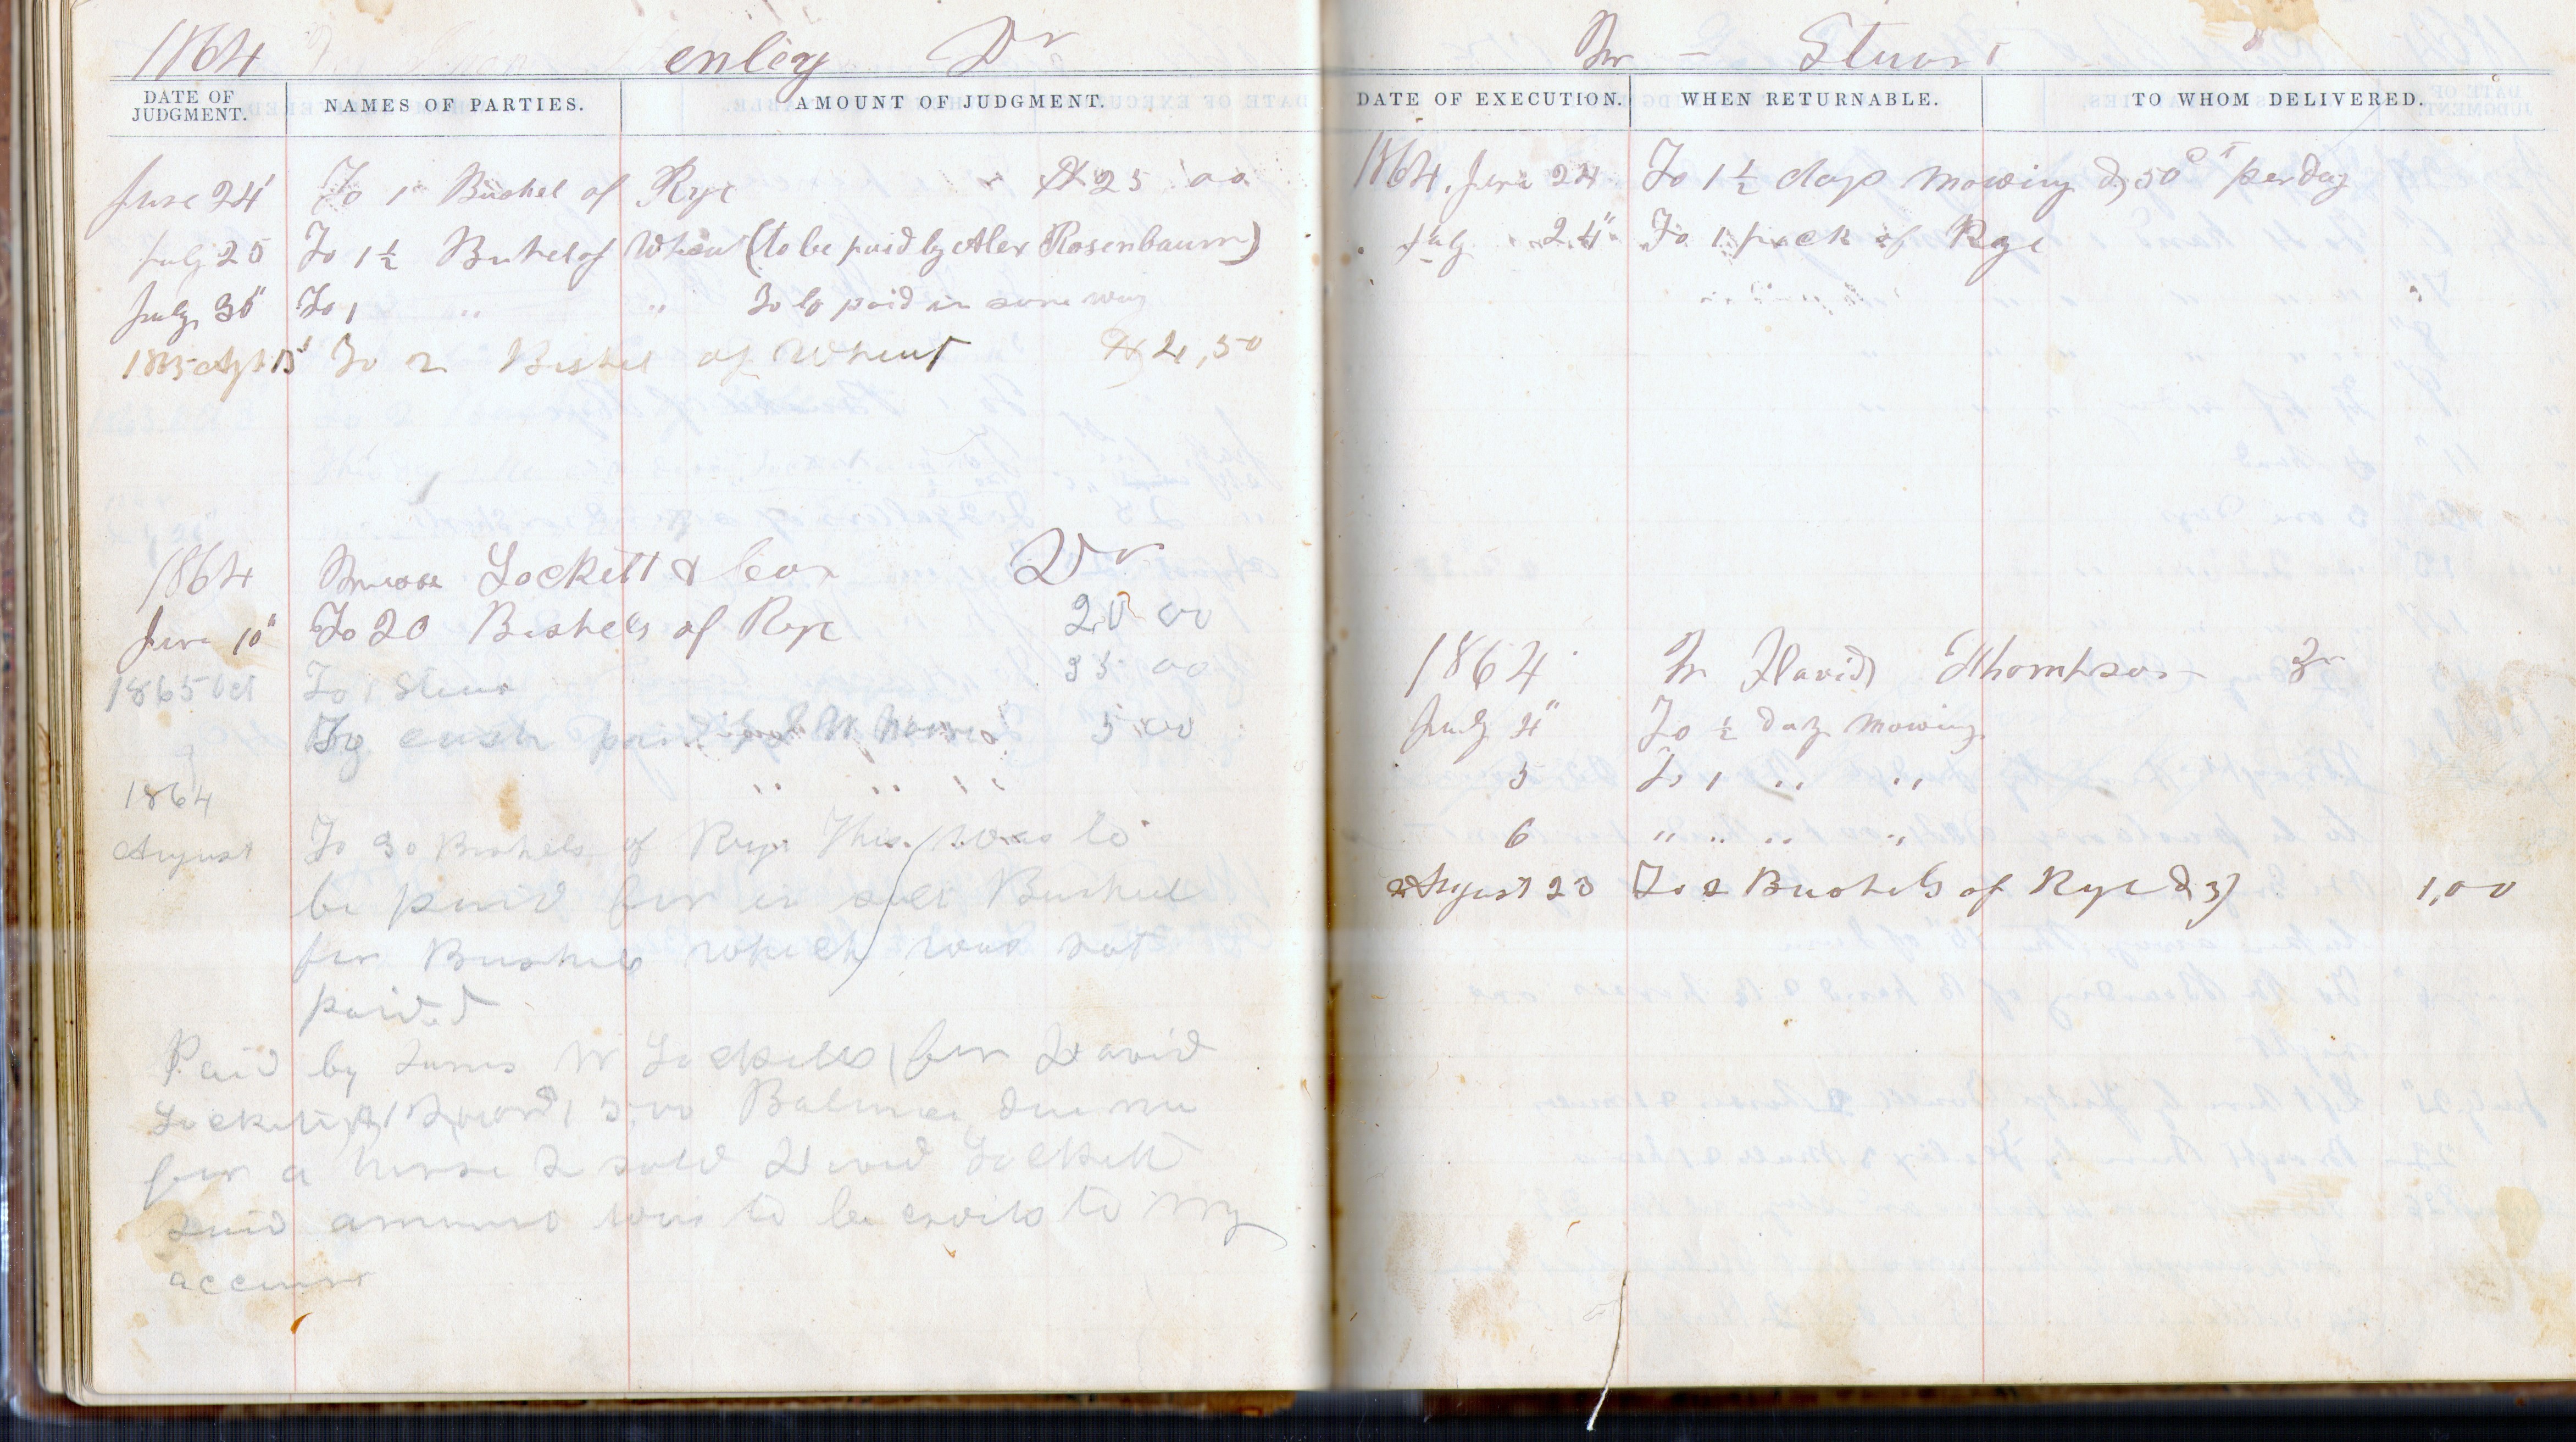 1864 enley Dr
DATE OF JUDGMENT. NAMES OF PARTIES. AMOUNT OF JUDGMENT.
June 24" To 1 Bushel of Rye $25 00
July 25 To 1½ Buhel of Wheat (to be paid by Alex Rosenbaum)
July 30" To 1 " " To be paid in same way
1865 Sept 15" To 2 Bushel of Wheat $4,50
1864 Lockett & Dr
June 10" To 20 Bushels of Rye 20 00
1865 Oct To 1 Steer 35 00
By cash paid W 5 00
" " "
1864
August To 30 Bushels of Rye This was to
be paid for in salt Bushel
for Bushels which was not
paid
Paid by W Locketts for David
Lockett 500 Balance due me
for a horse I sold David Lockett
said amount was to be credit to my
account
Mr - Stuart
DATE OF EXECUTION. WHEN RETURNABLE. TO WHOM DELIVERED.
1864. June 24 To 1½ days mowing @ 50 ct per day
July 24" To 1 peck of Rye
1864 Mr David Thompson Dr
July 4" To ½ day mowing
5 To 1 " "
6 " " " "
August 23 To 2 Bushels of Rye 1,00